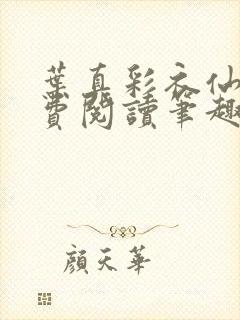 葉真彩衣仙
費閱讀筆趣
顏天華